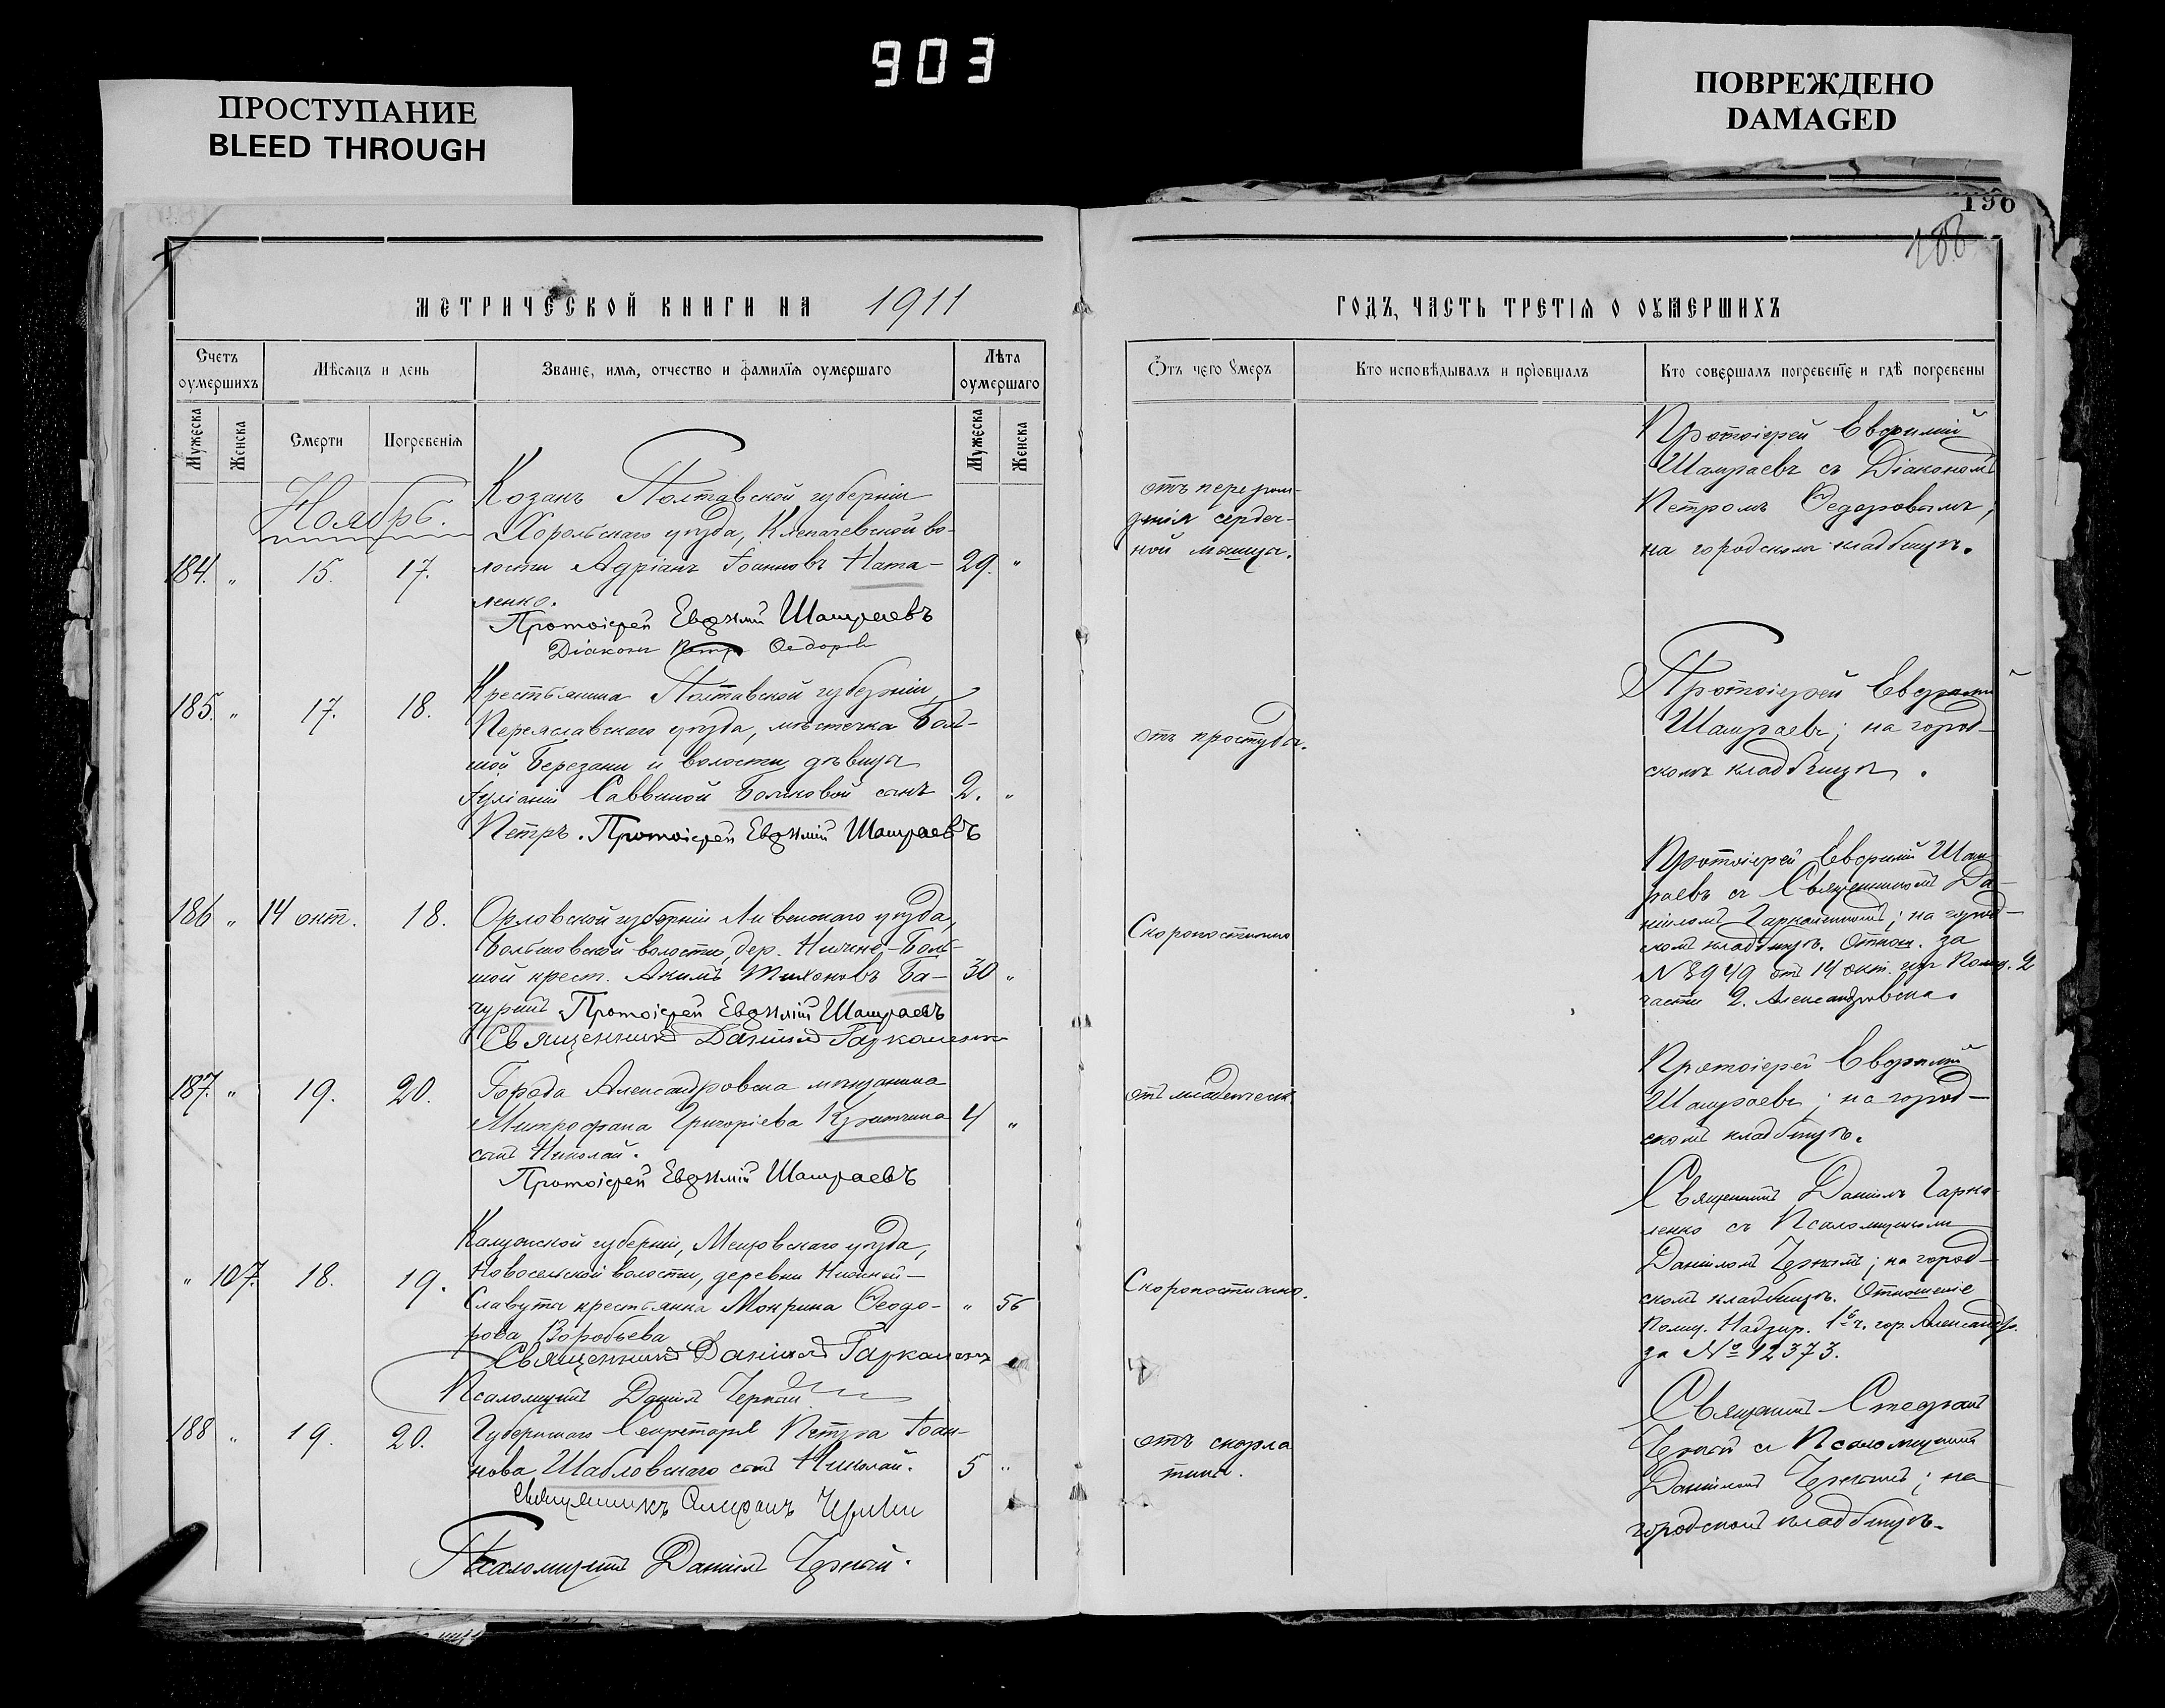 903
ПРОСТУПАНИЕ
BLEED THROUGH
ПОВРЕЖДЕНО
DAMAGED
190
188
МЕТРИЧЕСКОЙ КНИГИ НА 1911
ГОДЪ, ЧАСТЬ ТРЕТІЯ О ОУМЕРШИХЪ
Счетъ оумершихъ
Мѣсяцъ и день
Званіе, имя, отчество и фамилія оумершаго
Лѣта оумершаго
Мужеска
Женска
Смерти
Погребенія
Мужеска
Женска
Отъ чего Умеръ
Кто исповѣдывалъ и пріобщалъ
Кто совершалъ погребеніе и гдѣ погребены
Ноябрь.
Козакъ Полтавской губерніи
Хорольскаго уѣзда, Клепачевской во-
184. " 15. 17. лости Адріанъ Іоанновъ Ната- 29. "
ленко.
Протоіерей Евѳимій Шамраевъ
Діаконъ Петръ Ѳедоровъ
отъ перерож-
денія сердеч-
ной мышцы.
Протоіерей Евфимій
Шамраевъ съ Діакономъ
Петромъ Ѳедоровымъ,
на городскомъ кладбищѣ.
Крестьянина Полтавской губерніи,
185. " 17. 18.
Переяславскаго уѣзда, мѣстечка Боль-
шой Березани и волости дѣвицы
Іуліаніи Саввиной сынъ 2. "
Петръ. Протоіерей Евѳимій Шамраевъ
отъ простуды.
Протоіерей Евфимій
Шамраевъ; на город-
скомъ кладбищѣ.
186 " 14 окт. 18. Орловской губерніи Ливенскаго уѣзда,
волости, дер. Боль-
шой крест. Акимъ Тихоновъ Ба- 30 "
чуринъ Протоіерей Евѳимій Шамраевъ
Священникъ Даніилъ Гаркаленко
Скоропостижно
Протоіерей Евфимій Шам-
раевъ съ Священникомъ Да-
ніиломъ ; на город-
скомъ кладбищѣ. Отнош. за
N 8949 отъ 14 окт. Полиц. 2
части г. Александровска.
187. " 19. 20. Города Александровска мѣщанина
Митрофана Григоріева 4 "
сынъ Николай.
Протоіерей Евѳимій Шамраевъ
отъ младенческ.
Протоіерей Евфимій
Шамраевъ; на город-
скомъ кладбищѣ.
Калужской губерніи, Мещовскаго уѣзда,
" 107. 18. 19. Новосельской волости, деревни Нижней-
Славуты крестьянка Мокрина Ѳеодо- " 56
рова Воробьева
Священникъ Даніилъ Гаркаленко
Псаломщикъ Даніилъ Черный
Скоропостижно.
Священникъ Даніилъ Гарка-
ленко съ Псаломщикомъ
Даніиломъ Чернымъ; на город-
скомъ кладбищѣ. Отношеніе
Полиц. Надзир. 1й ч. гор. Александр.
за № 12373.
188 " 19. 20. Губернскаго Секретаря Петра Іоан-
нова Шабловскаго сынъ Николай. 5 "
Священникъ Стефанъ Черный
Псаломщикъ Даніилъ Черный.
отъ скарла
тины.
Священникъ Стефанъ
Черный съ Псаломщикомъ
Даніиломъ Чернымъ; на
городскомъ кладбищѣ.